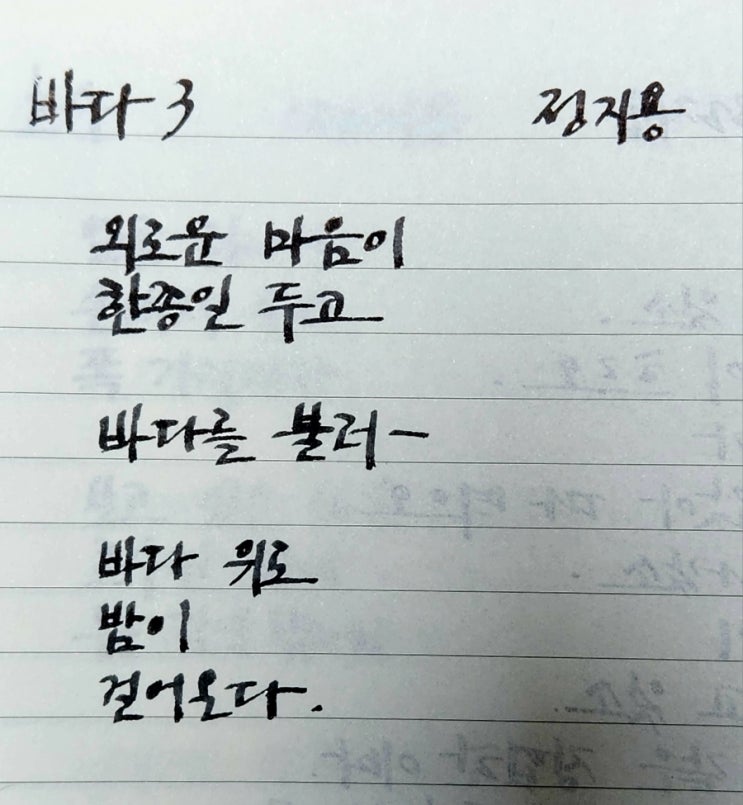 바다 3 정지용
외로운 마음이
한종일 두고
바다를 불러 —
바다 위로
밤이
걸어온다.